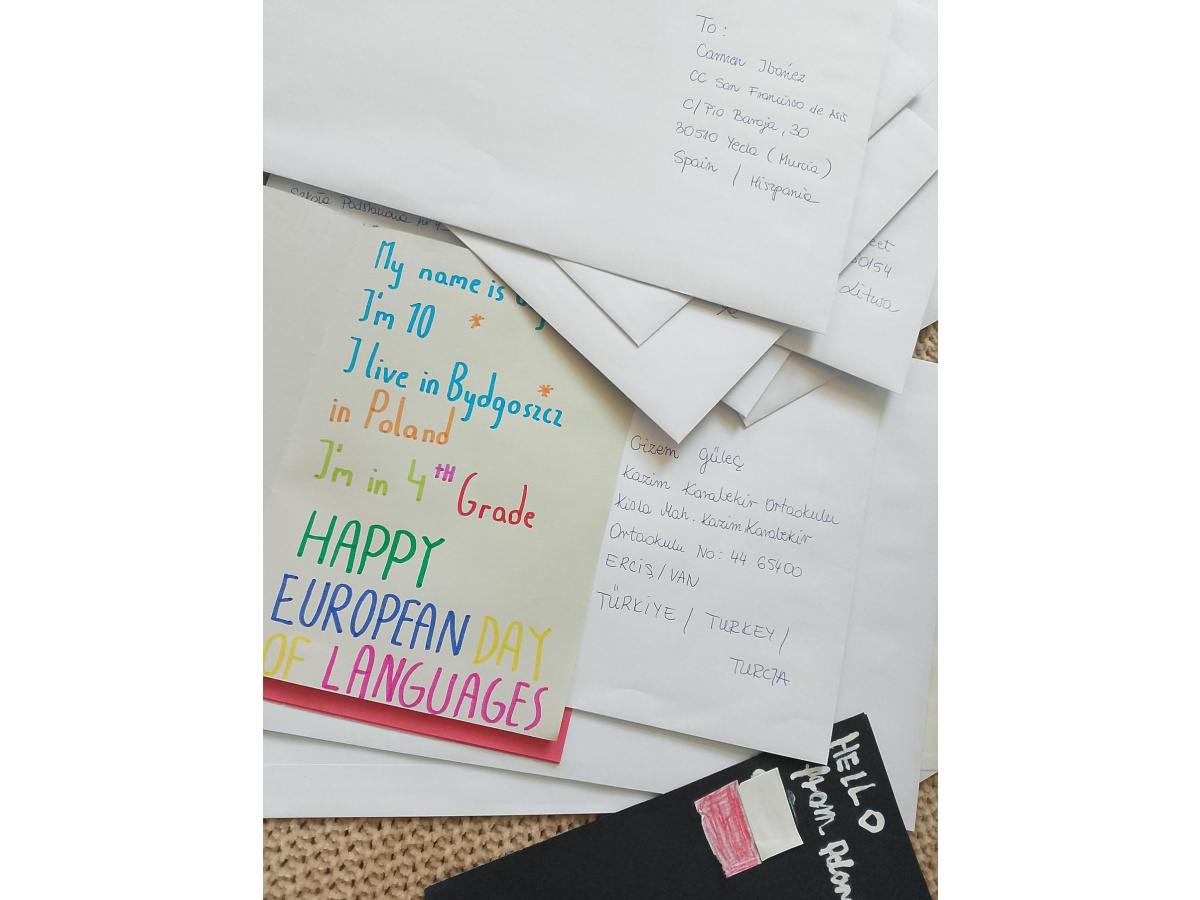 To:
Carmen Ibáñez
CC San Francisco de Asis
C/Pio Baroja, 30
30510 Yecla (Murcia)
Spain / Hiszpania
Szkoła Podstawowa nr
eet
30154
Litwa
My name is
I'm 10
I live in Bydgoszcz
in Poland
I'm in 4TH Grade
HAPPY
EUROPEAN DAY
OF LANGUAGES
Gizem Güleç
Kazim Karabekir Ortaokulu
Kisla Mah. Kazim Karabekir
Ortaokulu No: 44 65400
ERCİŞ/VAN
TÜRKİYE / TURKEY /
TURCJA
HELLO
from